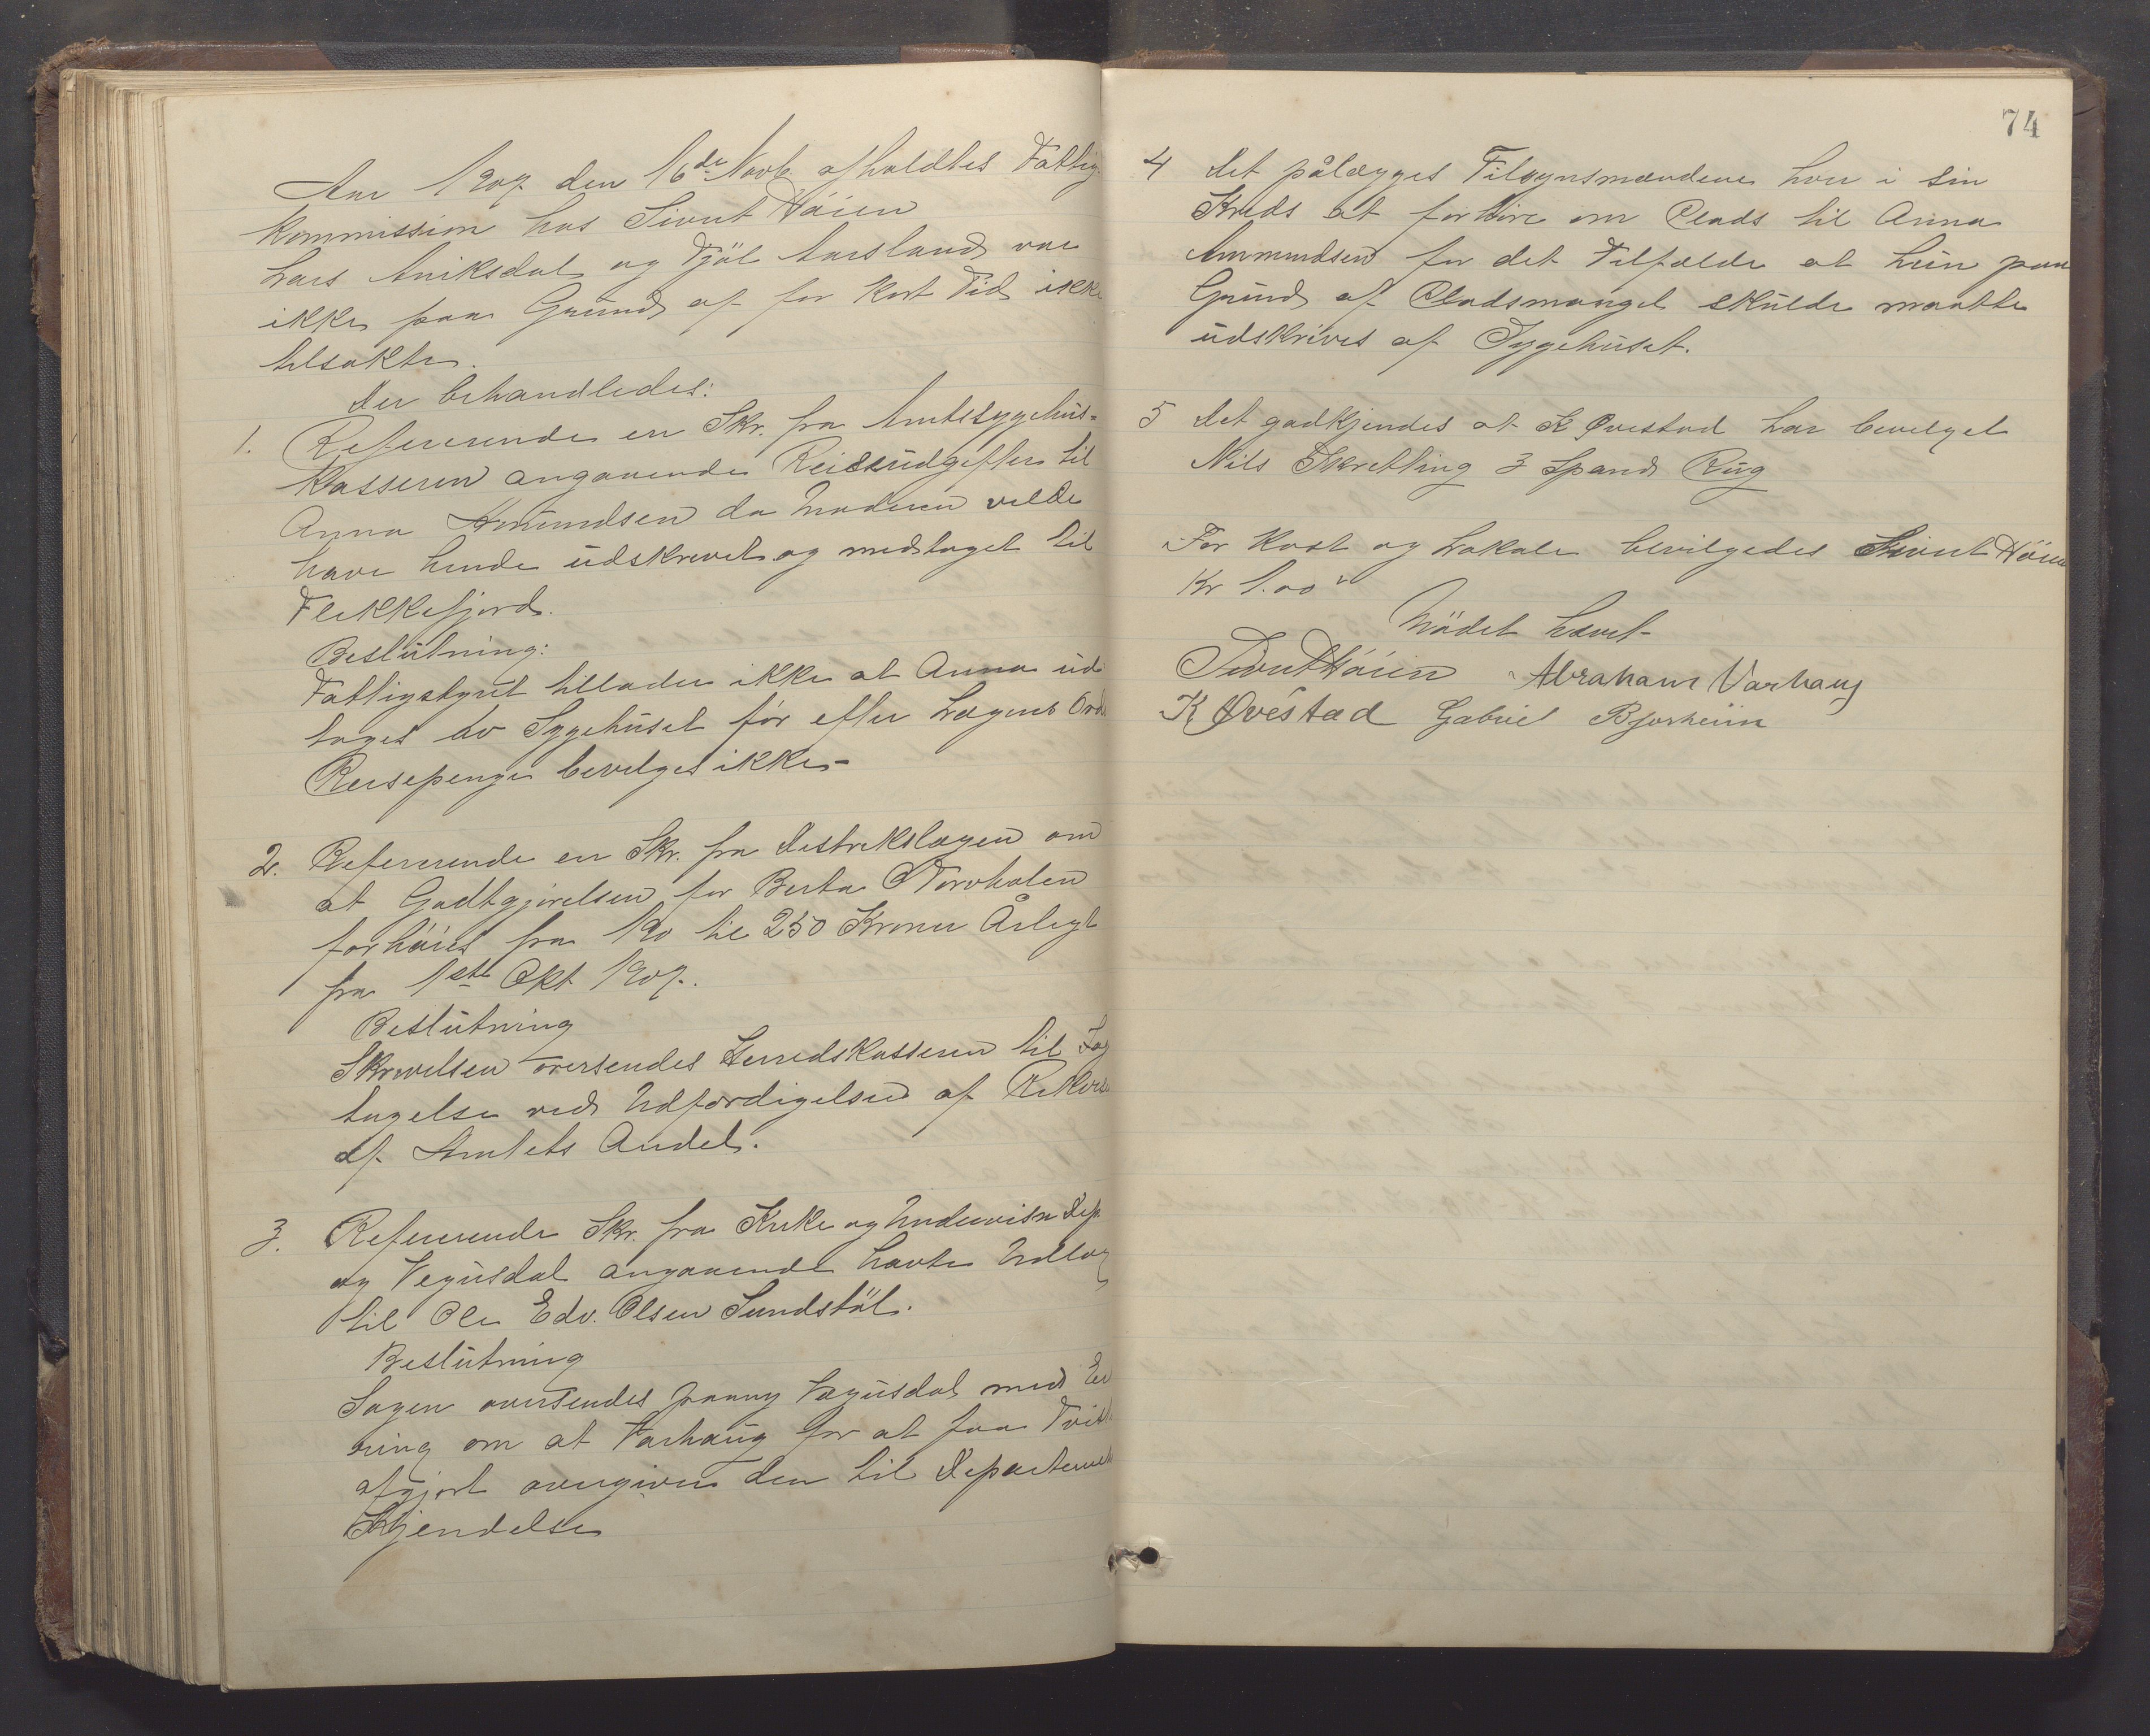 Aar 1907 den 16de Novb. afholdtes Fattig-
kommission hos Sivert Høien
Lars Aniksdal og Fjøl Aarsland var
ikke paa Grund af for kort Tid ikke
tilsakte.
Der behandledes:
1. Refererende en Skr. fra Amtssygehus-
kasseren angaaende Reiseudgifter til
Anna Amundsen da Moderen vilde
have hende udskrevet og medtaget til
Flekkefjord.
Beslutning:
Fattigstyret tillader ikke at Anna ud-
tages av Sygehuset før efter Lægens Ord
Reisepenge bevilges ikke-
2. Refererende en Skr. fra Distrikslægen om
at Godtgjørelsen for Berta Torvhalen
forhøiet fra 190 til 250 Kroner Årligt
fra 1ste Okt 1907.
Beslutning
Skrivelsen oversendes Herredskasseren til
tagelse ved Udfærdigelsen af
af Amtets Andel.
3. Refererende Skr. fra Kirke og Undervisn Dep.
og Vegusdal angaaende havte Udlæg
til Ole Edv. Olsen Sundstøl.
Beslutning
Sagen oversendes paany Vegusdal med
ring om at Varhaug for at faa Tvist
afgjort overgiver den til Departemente
Kjendelse
74
4 Det pålægges Tilsynsmændene hver i sin
Kreds at forhöre om Plads til Anna
Ammundsen for det Tilfælde at hun paa
Grund af Pladsmangel skulde maatte
udskrives af Sygehuset.
5 Det godkjendes at K Øvestad har bevilget
Nils Skretting 3 Spand Rug
For Kost og Lokale bevilgedes Sivert Høien
Kr 1.00
Mödet hævet-
Sivert Høien Abraham Varhaug
K Øvestad Gabriel Bjorheim